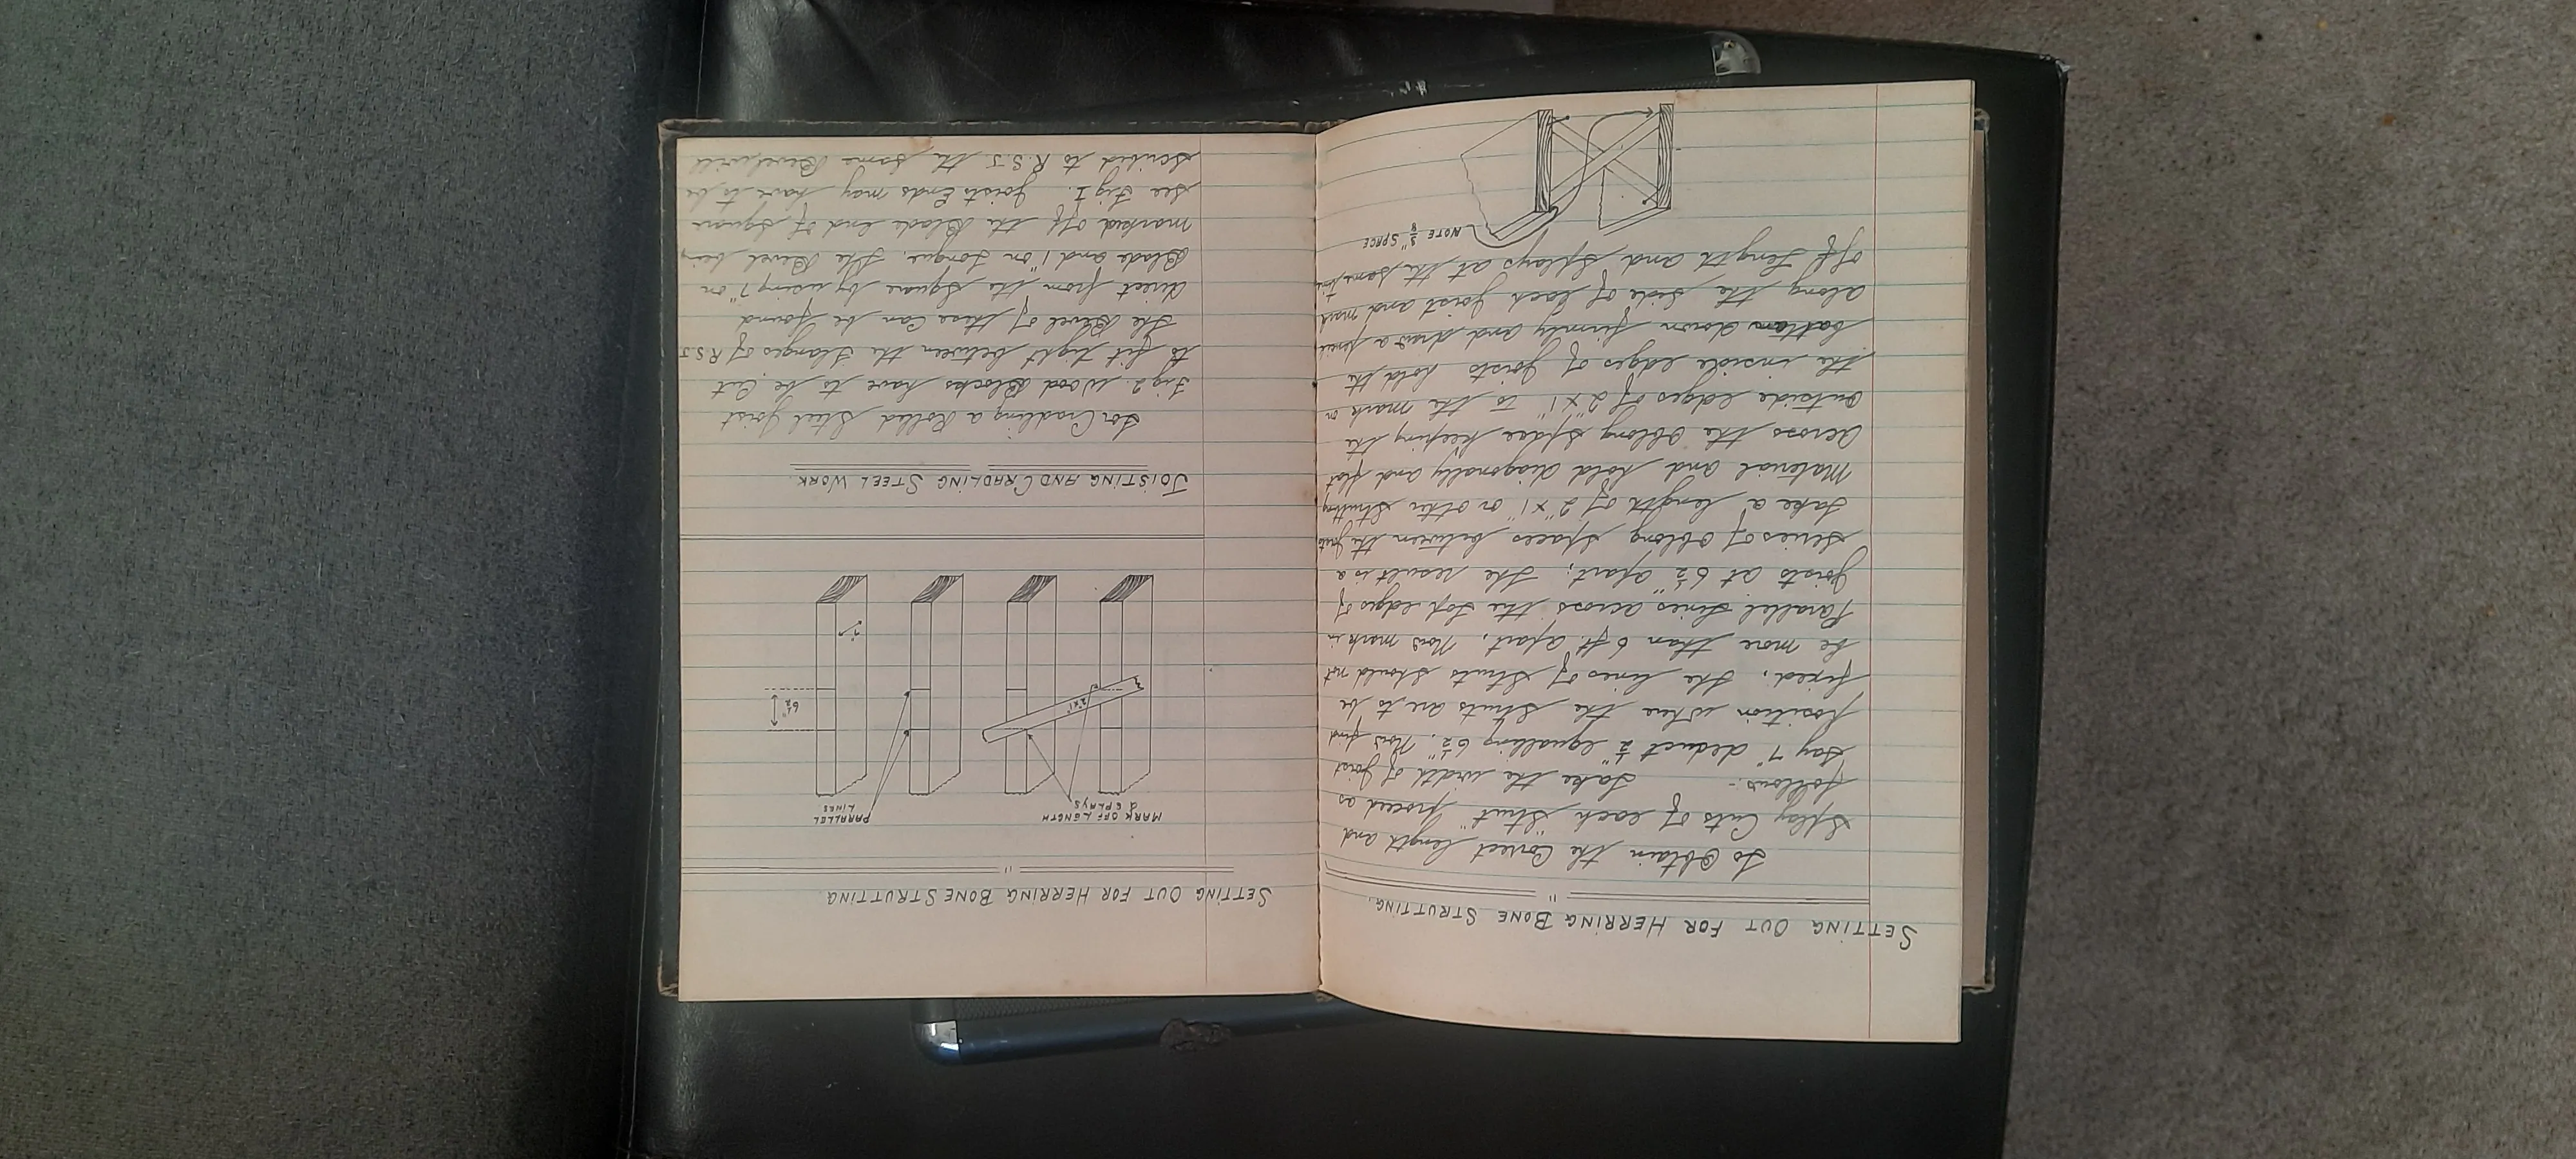 SETTING OUT FOR HERRING BONE STRUTTING.
"
To Obtain the Correct length and
Splay Cuts of each "Strut" proceed as
follows:- Take the width of joist
say 7" deduct ½" equalling 6½". Now find
position where the struts are to be
fixed. The lines of struts should not
be more than 6 ft. apart. Now mark in
Parallel Lines across the top edges of
joists at 6½" apart; The result is a
series of oblong spaces between the joists
Take a length of 2" x 1" or other strutting
Material and hold diagonally and flat
across the oblong space keeping the
outside edges of 2" x 1" to the mark on
the inside edges of joists hold the
batten down firmly and draw a pencil
along the side of each joist and mark
off Length and Splays at the same time
NOTE ⅝" SPACE
SETTING OUT FOR HERRING BONE STRUTTING.
"
MARK OFF LENGTH
& SPLAYS
PARALLEL
LINES
2" x 1"
6½"
7"
JOISTING AND CRADLING STEEL WORK.
For Cradling a Rolled Steel joist
Fig 2. Wood Blocks have to be Cut
to fit tight between the Flanges of R.S.J.
The Bevel of these Can be found
direct from the Square by using 7" on
Blade and 1" on tongue. The Bevel being
marked off the Blade end of Square
see Fig 1. Joists Ends may have to be
scribed to R.S.J the same Bevel will